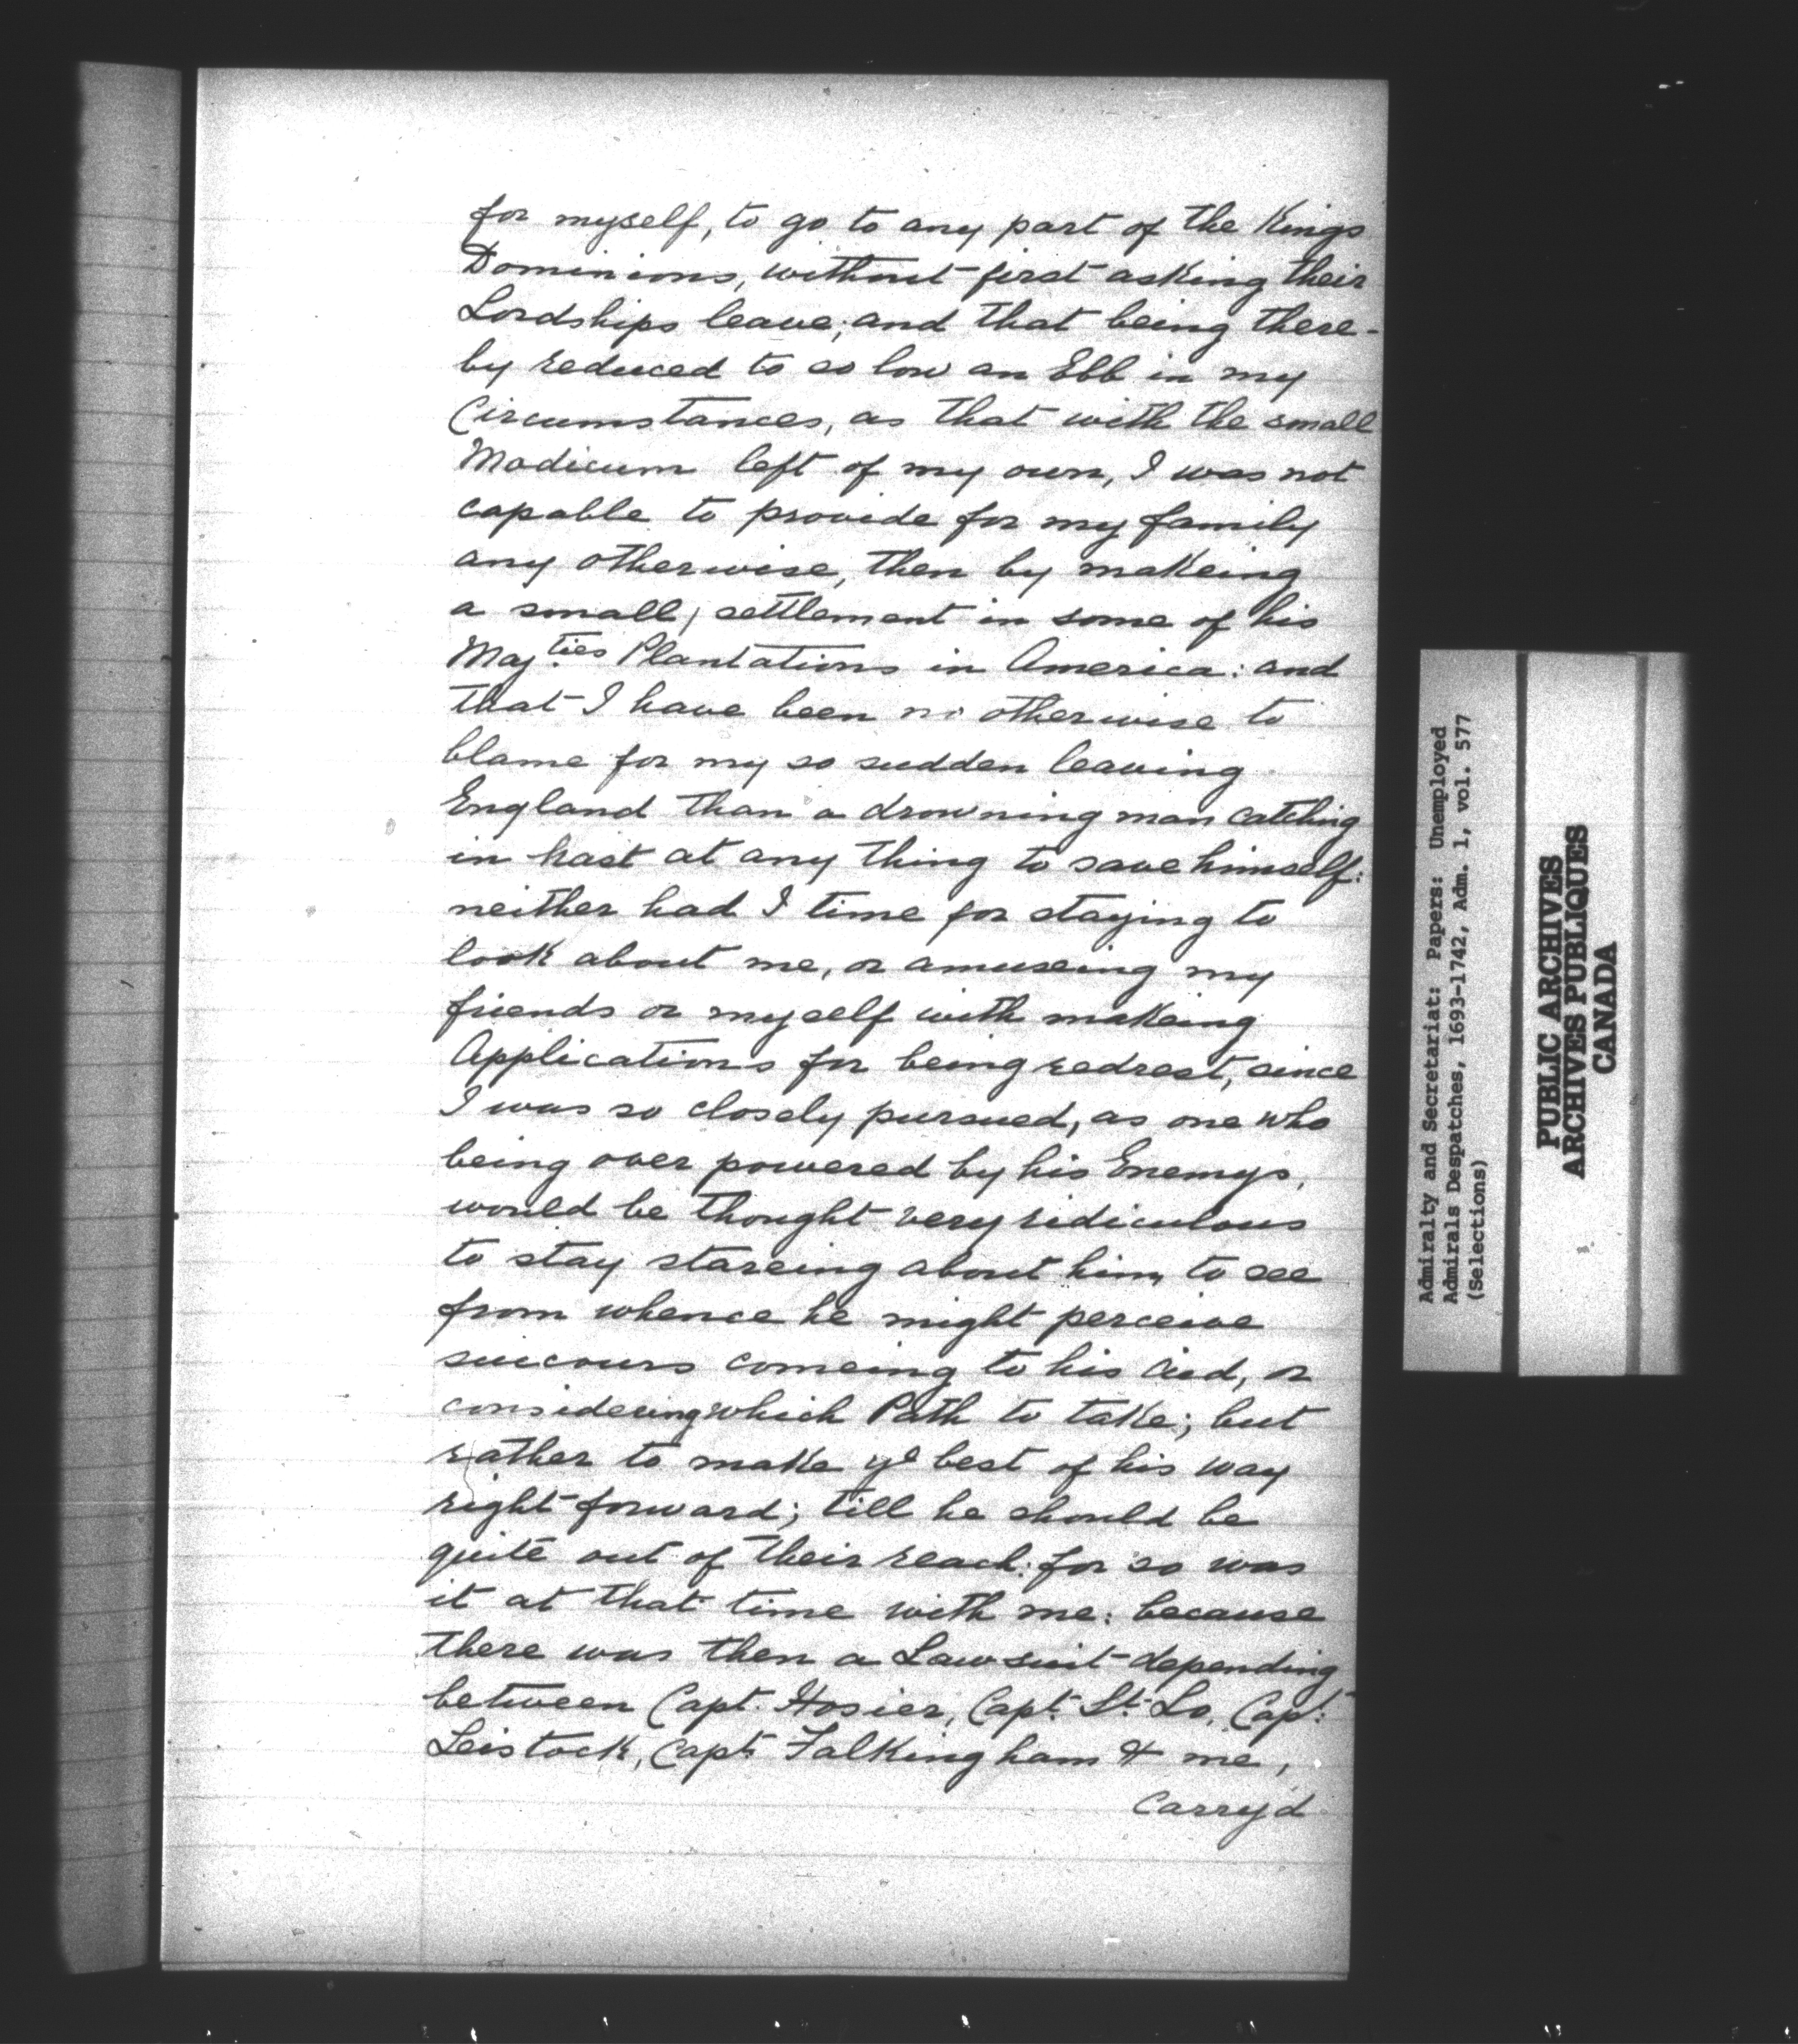 for myself, to go to any part of the Kings
Dominions, without first asking their
Lordships leave; and that being there-
by reduced to so low an Ebb in my
Circumstances, as that with the small
Modicum left of my own, I was not
capable to provide for my family
any otherwise, then by makeing
a small, settlement in some of his
Maj.ties Plantations in America: and
that I have been no otherwise to
blame for my so sudden leaving
England than a drowning man catching
in hast at any thing to save himself:
neither had I time for staying to
look about me, or amuseing my
friends or myself with makeing
Applications for being redrest, since
I was so closely pursued, as one who
being over powered by his Enemys,
would be thought very ridiculous
to stay stareing about him, to see
from whence he might perceive
succours comeing to his aied, or
considering which Path to take; but
rather to make ye best of his way
right forward; till he should be
quite out of their reach: for so was
it at that time with me: because
there was then a Lawsuit depending
between Capt. Hosier, Capt. St. Lo, Capt.
Leistock, Capt. Falkingham & me,
Carry'd
Admiralty and Secretariat: Papers: Unemployed
Admirals Despatches, 1693-1742, Adm. 1, vol. 577
(Selections)
PUBLIC ARCHIVES
ARCHIVES PUBLIQUES
CANADA